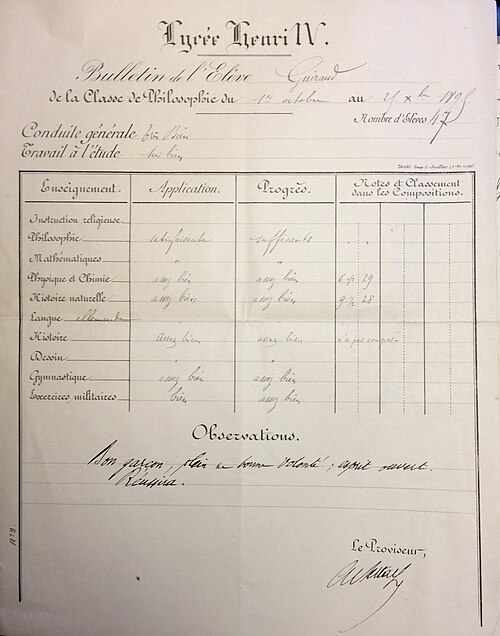 Lycée Henri IV.
Bulletin de l'Elève Guéraud
de la Classe de Philosophie du 1er octobre au 25 Xbre 1895
Nombre d'Elèves 47
Conduite générale très Bien
Travail à l'étude très bien
Enseignement. Application. Progrès. Notes et Classement dans les Compositions.
Instruction religieuse
Philosophie satisfaisante suffisants
Mathématiques " "
Physique et Chimie assez bien assez bien 6 ½ 29
Histoire naturelle assez bien assez bien 9 ½ 28
Langue allemande
Histoire assez bien assez bien n'a pas composé
Dessin "
Gymnastique assez bien assez bien
Exercices militaires bien assez bien
Observations.
Bon garçon, plein de bonne volonté ; esprit ouvert.
Réussira.
Le Proviseur,
N° 2.